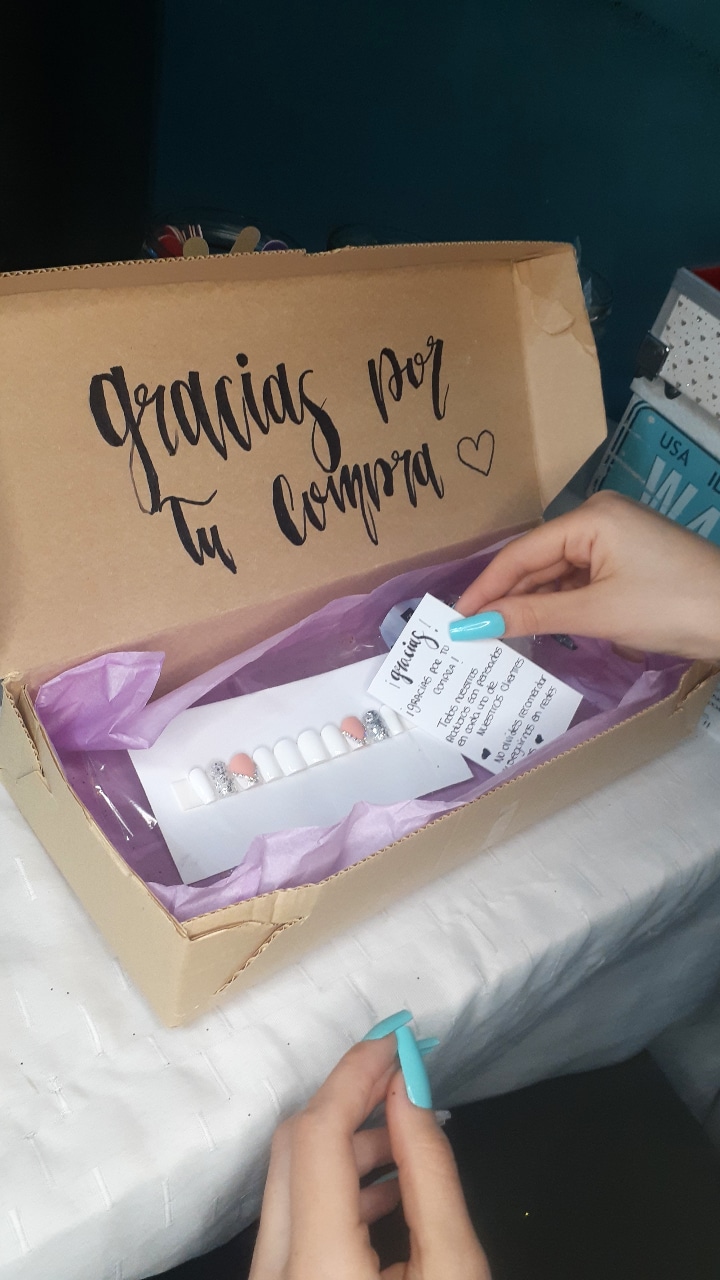 gracias por
tu compra ♡
¡gracias!
¡GRACIAS POR TU
COMPRA!
Todos nuestros
Productos son pensados
en cada uno de
Nuestros Clientes
No olvides recomendar
seguirnos en redes
USA
WA